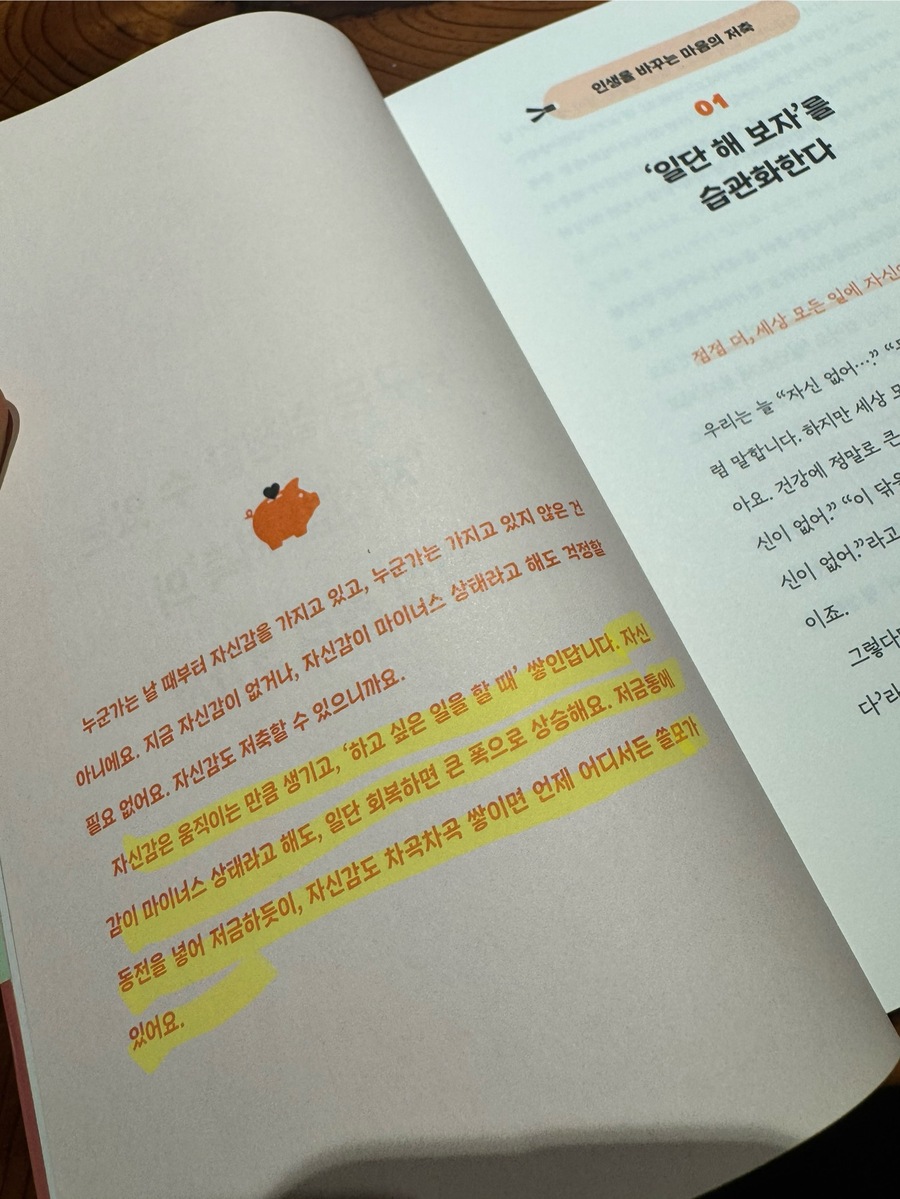 누군가는 날 때부터 자신감을 가지고 있고, 누군가는 가지고 있지 않은 건
아니에요. 지금 자신감이 없거나, 자신감이 마이너스 상태라고 해도 걱정할
필요 없어요. 자신감도 저축할 수 있으니까요.
자신감은 움직이는 만큼 생기고, ‘하고 싶은 일을 할 때’ 쌓인답니다. 자신
감이 마이너스 상태라고 해도, 일단 회복하면 큰 폭으로 상승해요. 저금통에
동전을 넣어 저금하듯이, 자신감도 차곡차곡 쌓이면 언제 어디서든 쓸모가
있어요.
인생을 바꾸는 마음의 저축
01
‘일단 해 보자’를
습관화한다
점점 더, 세상 모든 일에
우리는 늘 “자신 없어….”
럼 말합니다. 하지만 세상
아요. 건강에 정말로 큰
신이 없어.” “이
신이 없어.”라고
이죠.